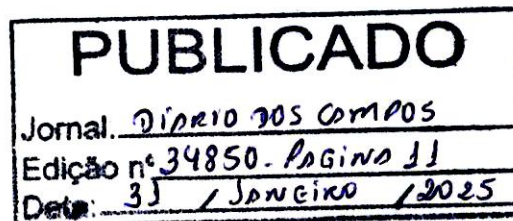 PUBLICADO
Jornal. DIÁRIO DOS CAMPOS
Edição nº 34850. PAGINA 11
Data: 31 / JANEIRO / 2025